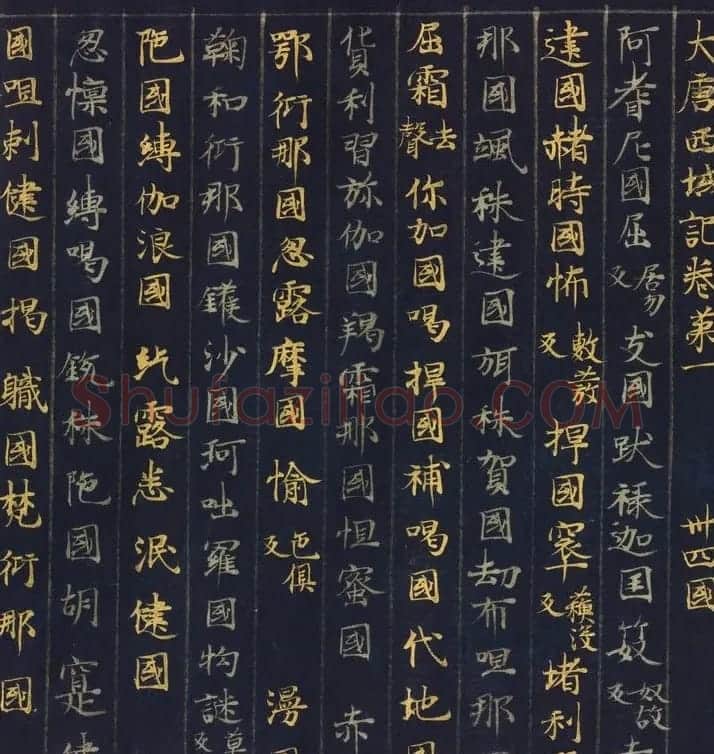 大唐西域記卷第一 卅四國
阿耆尼國屈居勿反支國跋祿迦国笯奴故反
建國赭時國怖敷發反捍國窣蘇沒反堵利
那國颯秣建國弭秣賀國劫布呾那
屈霜去聲你加國喝捍國補喝國代地國
貨利習弥伽國羯霜那國怛蜜國 赤
鄂衍那國忽露摩國愉色俱反 漫
鞠和衍那國鑊沙國珂咄羅國拘謎莫反
陁國縛伽浪國 紇露悉泯健國
忽懍國縛喝國銳秣陁國胡寔健
國呾剌健國揭職國梵衍那國
Shufazihao.COM